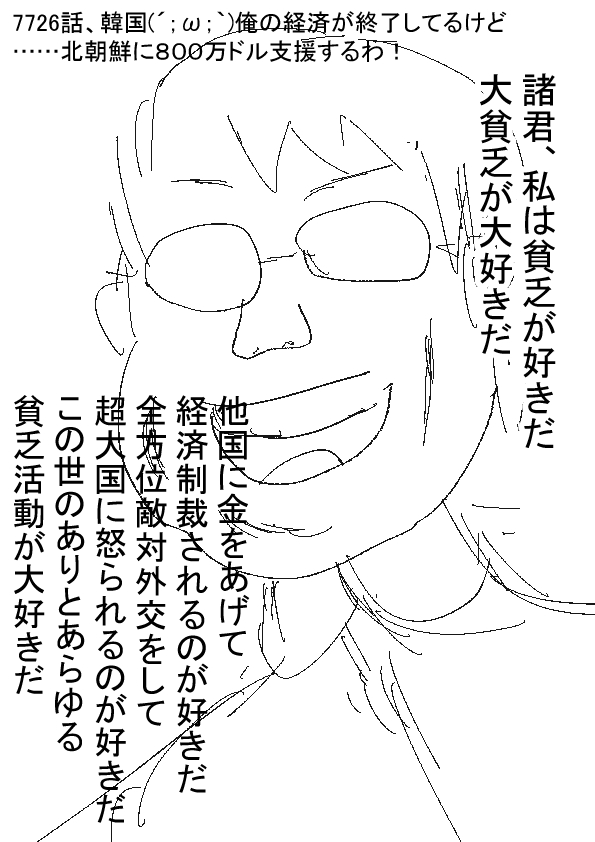 7726話、韓国(´；ω；`)俺の経済が終了してるけど
……北朝鮮に８００万ドル支援するわ！
諸君、私は貧乏が好きだ
大貧乏が大好きだ
他国に金をあげて
経済制裁されるのが好きだ
全方位敵対外交をして
超大国に怒られるのが好きだ
この世のありとあらゆる
貧乏活動が大好きだ